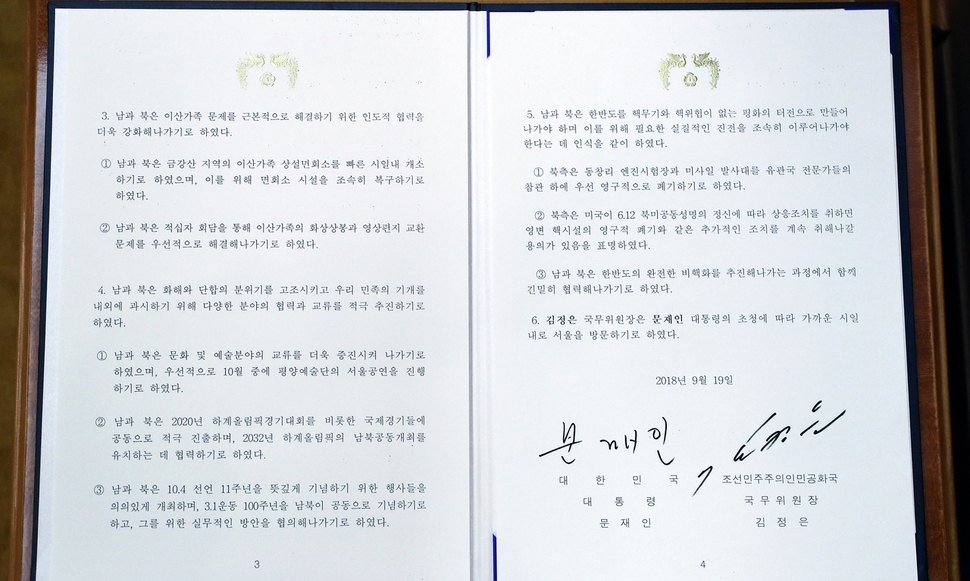 3. 남과 북은 이산가족 문제를 근본적으로 해결하기 위한 인도적 협력을
더욱 강화해나가기로 하였다.
① 남과 북은 금강산 지역의 이산가족 상설면회소를 빠른 시일내 개소
하기로 하였으며, 이를 위해 면회소 시설을 조속히 복구하기로
하였다.
② 남과 북은 적십자 회담을 통해 이산가족의 화상상봉과 영상편지 교환
문제를 우선적으로 해결해나가기로 하였다.
4. 남과 북은 화해와 단합의 분위기를 고조시키고 우리 민족의 기개를
내외에 과시하기 위해 다양한 분야의 협력과 교류를 적극 추진하기로
하였다.
① 남과 북은 문화 및 예술분야의 교류를 더욱 증진시켜 나가기로
하였으며, 우선적으로 10월 중에 평양예술단의 서울공연을 진행
하기로 하였다.
② 남과 북은 2020년 하계올림픽경기대회를 비롯한 국제경기들에
공동으로 적극 진출하며, 2032년 하계올림픽의 남북공동개최를
유치하는 데 협력하기로 하였다.
③ 남과 북은 10.4 선언 11주년을 뜻깊게 기념하기 위한 행사들을
의의있게 개최하며, 3.1운동 100주년을 남북이 공동으로 기념하기로
하고, 그를 위한 실무적인 방안을 협의해나가기로 하였다.
3
5. 남과 북은 한반도를 핵무기와 핵위협이 없는 평화의 터전으로 만들어
나가야 하며 이를 위해 필요한 실질적인 진전을 조속히 이루어나가야
한다는 데 인식을 같이 하였다.
① 북측은 동창리 엔진시험장과 미사일 발사대를 유관국 전문가들의
참관 하에 우선 영구적으로 폐기하기로 하였다.
② 북측은 미국이 6.12 북미공동성명의 정신에 따라 상응조치를 취하면
영변 핵시설의 영구적 폐기와 같은 추가적인 조치를 계속 취해나갈
용의가 있음을 표명하였다.
③ 남과 북은 한반도의 완전한 비핵화를 추진해나가는 과정에서 함께
긴밀히 협력해나가기로 하였다.
6. 김정은 국무위원장은 문재인 대통령의 초청에 따라 가까운 시일
내로 서울을 방문하기로 하였다.
2018년 9월 19일
문재인
대 한 민 국
대 통 령
문 재 인
조선민주주의인민공화국
국 무 위 원 장
김 정 은
4